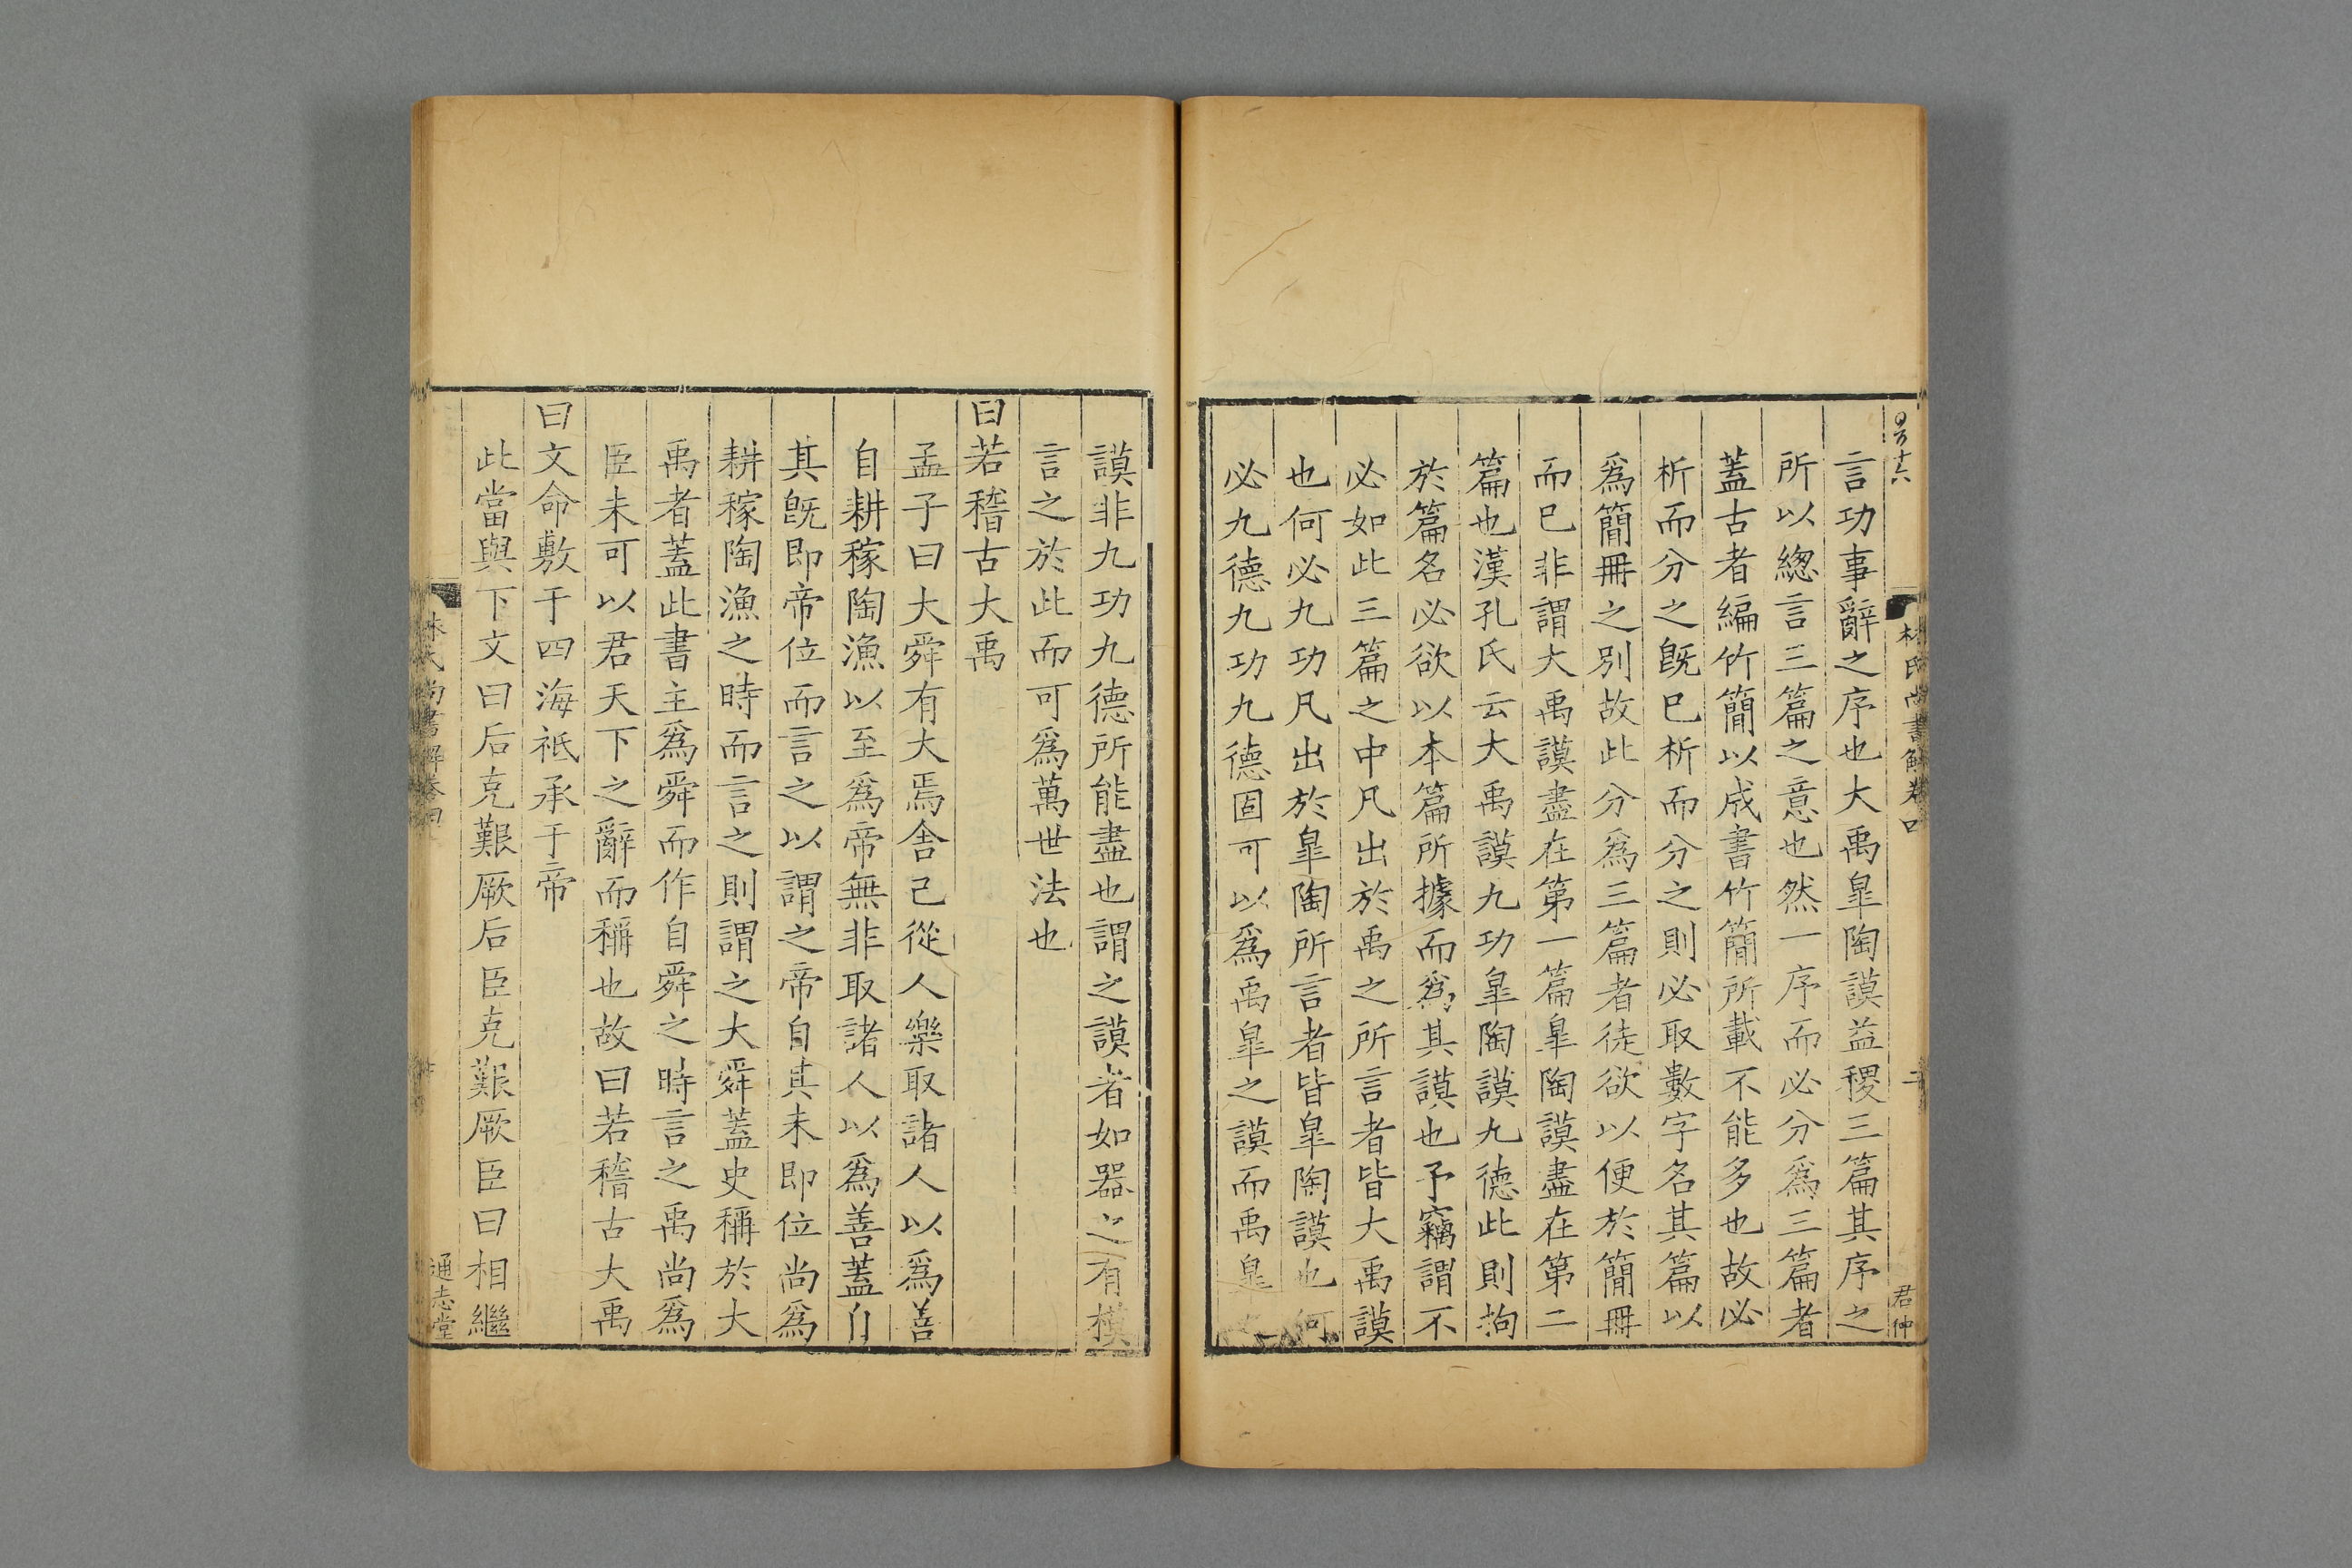 言功事辭之序也大禹臯陶謨益稷三篇其序之
所以總言三篇之意也然一序而必分爲三篇者
蓋古者編竹簡以成書竹簡所載不能多也故必
析而分之旣已析而分之則必取數字名其篇以
爲簡冊之別故此分爲三篇者徒欲以便於簡冊
而已非謂大禹謨盡在第一篇臯陶謨盡在第二
篇也漢孔氏云大禹謨九功臯陶謨九德此則拘
於篇名必欲以本篇所據而爲其謨也予竊謂不
必如此三篇之中凡出於禹之所言者皆大禹謨
也何必九功凡出於臯陶所言者皆臯陶謨也何
必九德九功九德固可以爲禹臯之謨而禹臯
謨非九功九德所能盡也謂之謨者如器之有模
言之於此而可爲萬世法也
曰若稽古大禹
孟子曰大舜有大焉舍己從人樂取諸人以爲善
自耕稼陶漁以至爲帝無非取諸人以爲善蓋自
其旣即帝位而言之以謂之帝自其未即位尚爲
耕稼陶漁之時而言之則謂之大舜蓋史稱於大
禹者蓋此書主爲舜而作自舜之時言之禹尚爲
臣未可以君天下之辭而稱也故曰若稽古大禹
曰文命敷于四海祗承于帝
此當與下文曰后克艱厥后臣克艱厥臣曰相繼
林氏尚書解卷四
二
君仲
林氏尚書解卷四
通志堂